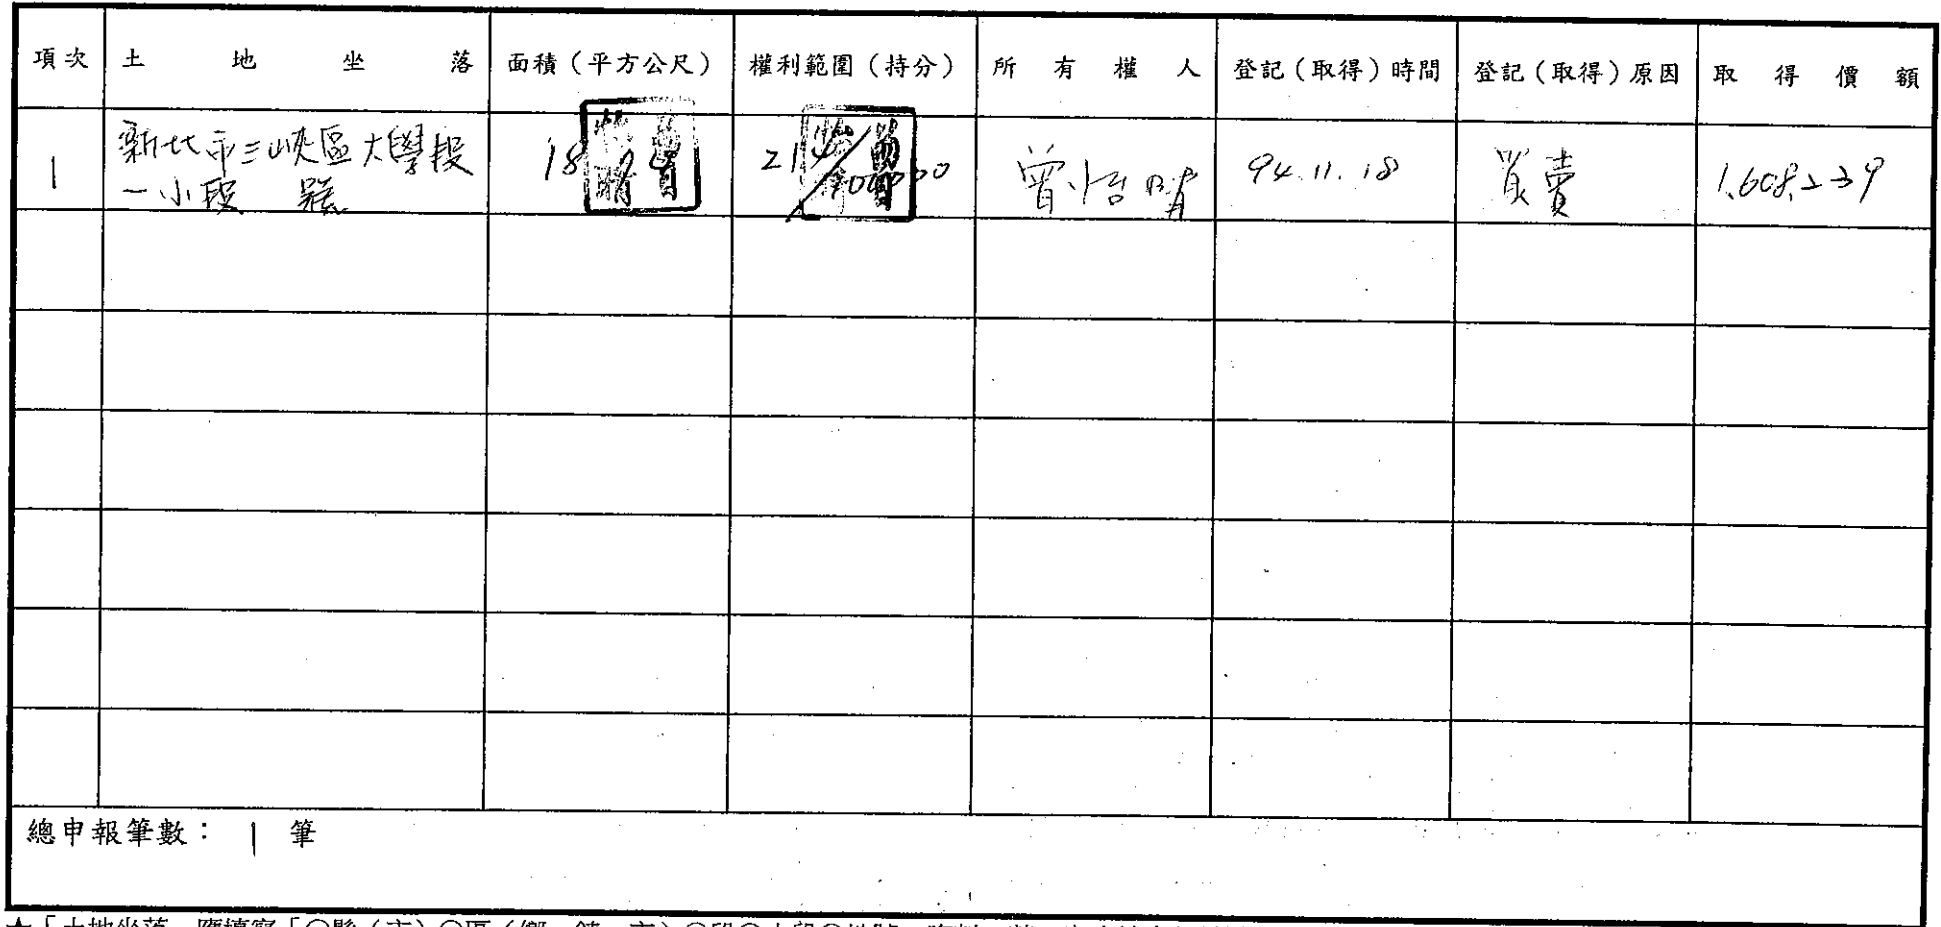 項次 土地坐落 面積（平方公尺） 權利範圍（持分） 所有權人 登記（取得）時間 登記（取得）原因 取得價額
1 新北市三峽區大學段一小段 號 曾怡晴 94.11.18 買賣 1,608,239
總申報筆數： 1 筆